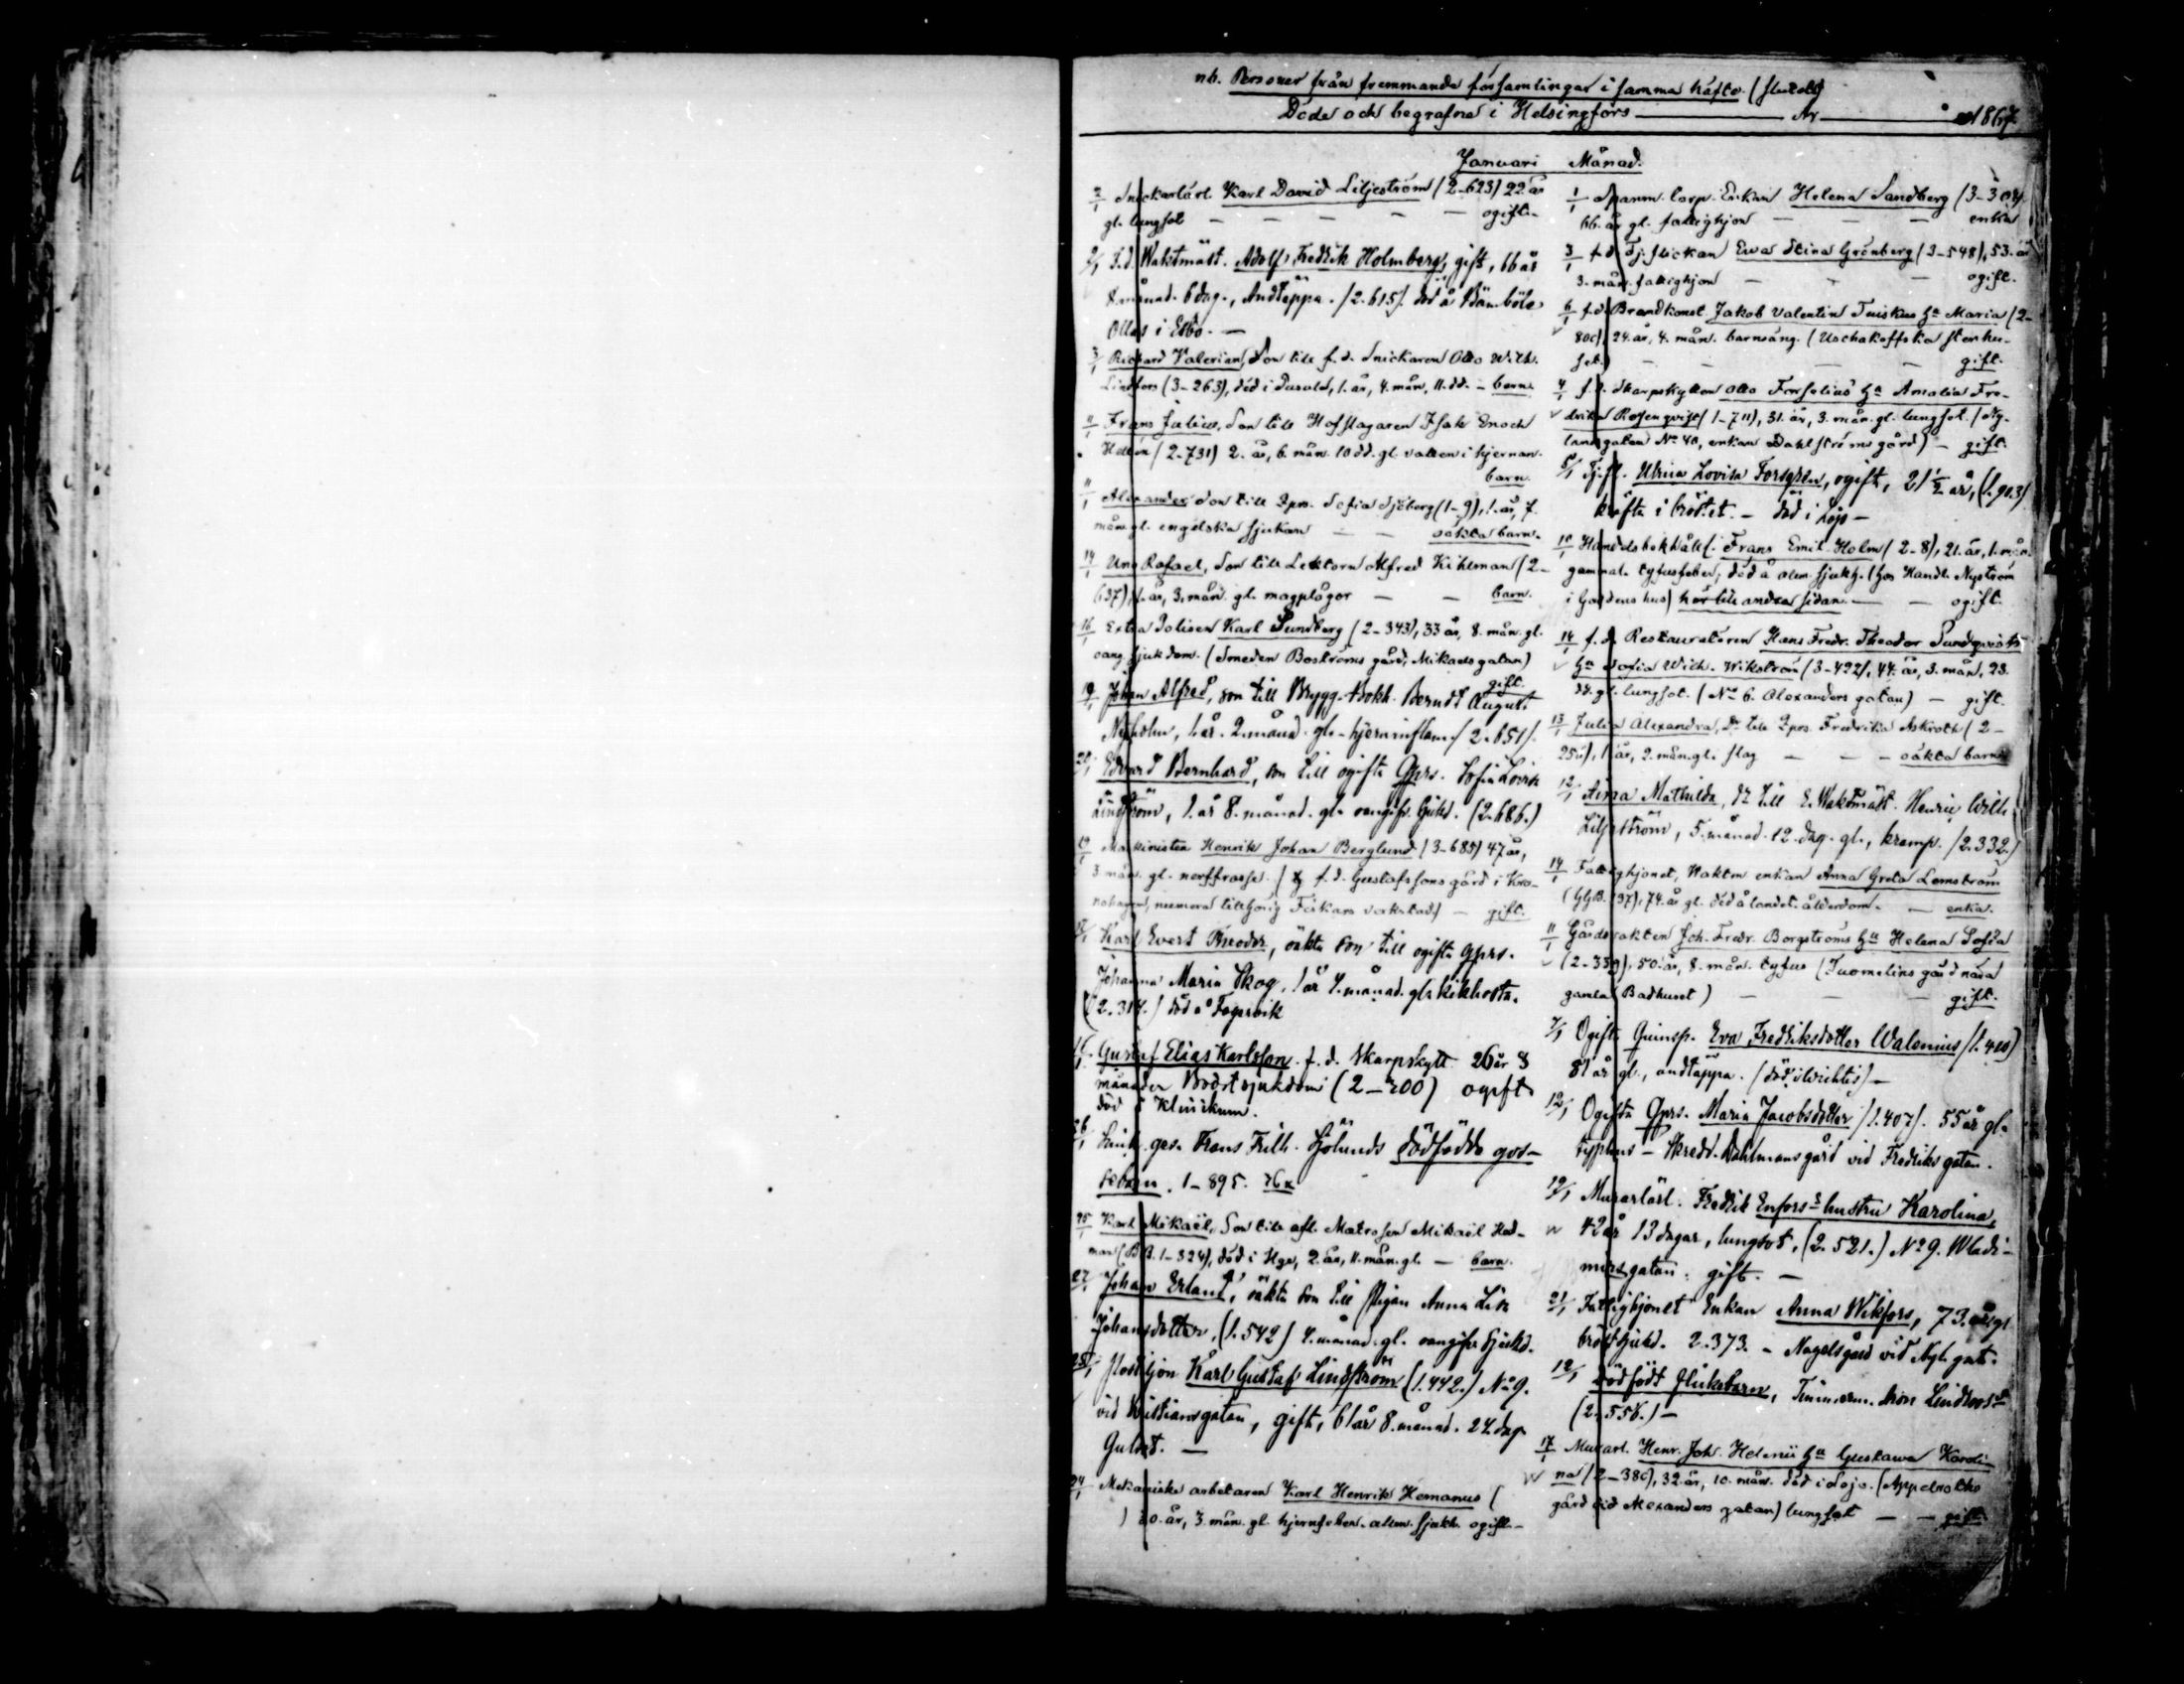 nb. Personer från fremmande församlingar i samma häfte. (slutet)
Döde och begrafne i Helsingfors År 1867.
Januari Månad.
2/1 Snickarlärl. Karl David Liljeström (2-623) 22 år
gl. lungsot — — — — — ogift.
2/1 F.d. Waktmäst. Adolf Fredrik Holmberg, gift, 66 år
8 månad. 6 dag., Andtäppa. (2.615). död å Bämböle
Ollas i Esbo. —
3/1 Richard Valerian, Son till f.d. Snickaren Otto Wilh.
Lindfors (3-263), död i , 1. år, 4. mån. 11. dd. - barn.
11/1 Frans Julius, Son till Hofslagaren Isak Enoch
(2-731) 2. år, 6. mån. 10 dd. gl. vatten i hjernan.
barn.
11/1 Alexander Son till Qprs. Sofia Sjöberg (1-9), 1. år, 7.
mån. gl. engelska sjukan — — oäkta barn.
14/1 Uno Rafael, Son till Lektorn Alfred Kihlman (2-
637), 1. år, 3. mån. gl. magplågor — — barn.
16/1 Extra Polisen Karl Sundberg (2-343), 33 år, 8. mån. gl.
sjukdom. (Smeden Boströms gård, Mikaels gatan)
gift.
19/1 Johan Alfred, son till Brygg. Bokh. Berndt August
Nyholm, 1. år. 2. månad. gl. - hjerninflam. (2.651).
20/1 Edvard Bernhard, son till ogifta Qprs. Sofia Lovisa
Lindström, 1. år 8. månad. gl. oangifv. sjukd. (2.686.)
19/1 Maskinisten Henrik Johan Berglund (3-685) 47 år,
3 mån. gl. nerffrossa. ( f.d. Gustafssons gård i Kro-
nohagen, numera tillhörig Fiskars verkstad) — gift.
Karl Evert Theodor, oäkta son till ogifta Qprs.
Johanna Maria Skog, 1 år 4. månad. gl. kikhosta.
(2.314.) död å Fagervik
Gustaf Elias Karlsson f.d. Skarpskytt 26 år 8
månader Bröstsjukdom (2-200) ogift
död å Klinikum.
26/1 ges. Frans Fredr. Sjölunds dödfödda gos-
sebarn. 1-895.
25/1 Karl Mikaël, Son till afl. Matrosen Mikaël Hed-
man (BB. 1-324), död i Hge, 2. år, 11. mån. gl. — barn.
27/1 Johan Erland, oäkta son till Pigan Anna Lisa
Johansdotter, (1.542) 4. månad. gl. oangifv. sjukd.
25/1 Postiljon Karl Gustaf Lindström (1.442.) No 9.
vid Kristiansgatan, gift, 61 år 8. månad. 24. dag.
Gulsot. —
24/1 Mekaniska arbetaren Karl Henrik Homanus (
) 20. år, 3. mån. gl. hjernfeber. allm. sjukh. ogift. -
1/1 Spanm. Corp. Enkan Helena Sandberg (3-308)
66. år gl. fattighjon — — — enka
3/1 f.d. Tj. flickan Ewa Stina Grönberg (3-548), 53. år
3. mån. fattighjon — — — ogift.
6/1 f.d. Brandkonst. Jakob Valentin Tuiskus Hu Maria (2-
800), 24. år, 4. mån. barnsäng. (Uschakoffska stenhu-
set.) — — — — gift.
4/1 f.d. Skarpskytten Otto Forselius' Hu Amalia Fre-
drika Rosenqvist (1-711), 31. år, 3. mån. gl. lungsot. (Ny-
landsgatan No 40, enkan Dahlströms gård) — gift.
5/1 Tj. fl. Ulrica Lovisa Forsgren, ogift, 21½ år, (1.903)
kräfta i bröstet. - död i Lojo -
10/1 Handelsbokhåll. Frans Emil Holm (2-8), 21. år, 1. mån.
gammal. tyfusfeber; död å alm. sjukh. (hos Handl. Nyström
i Gardens hus) hör till andra sidan. — — ogift.
14/1 f.d. Restauratören Hans Fredr. Theodor Sundqvists
Hu Sofia Wilh. Wikström (3-422), 44. år, 3. mån, 23.
dd. gl. lungsot. (No 6. Alexanders gatan) — gift.
13/1 Julia Alexandra, Dr till Qprs. Fredrika Askroth (2-
25), 1 år, 2. mån. gl. slag — — — oäkta barn
12/1 Aina Mathilda, dr till E. Waktmäst. Henric Wilh.
Liljeström, 5. månad. 12. dag. gl., kramp. (2.332.)
14/1 Fattighjonet, Wakten enkan Anna Greta Lemström
(GGB. 197), 74. år gl. död å landet. ålderdom. — enka.
11/1 Gårdsvakten Joh. Fredr. Borgströms Hu Helena Sofia
(2-339), 50. år, 8. mån. tyfus (Tuomelins gård nära
gamla Badhuset) — — — gift.
7/1 Ogift. Eva Fredriksdotter Walenius (1.410)
81 år gl., andtäppa. (död i Wichtis) —
12/1 Ogifta Qprs. Maria Jacobsdotter (1.407). 55 år gl.
typhus - Skredd. Dahlmans gård vid Fredriks gatan.
19/1 Murarlärl. Fredrik Enfors's hustru Karolina,
42 år 13 dagar, lungsot, (2.521.) No 9. Wladi-
mirsgatan. gift. —
21/1 Fattighjonet Enkan Anna Wikfors, 73. år gl
bröstsjukd. 2.373. - Nagels gård vid Nyl. gat.
12/1 Dödfödt flickebarn, Timmerm.
(2.558.) —
17/1 Murarl. Henr. Joh. Helenii Hu Gustawa Karoli-
na (2-380), 32. år, 10. mån. död i Lojo. (Appelroths
gård vid Alexanders gatan) lungsot — — gift.